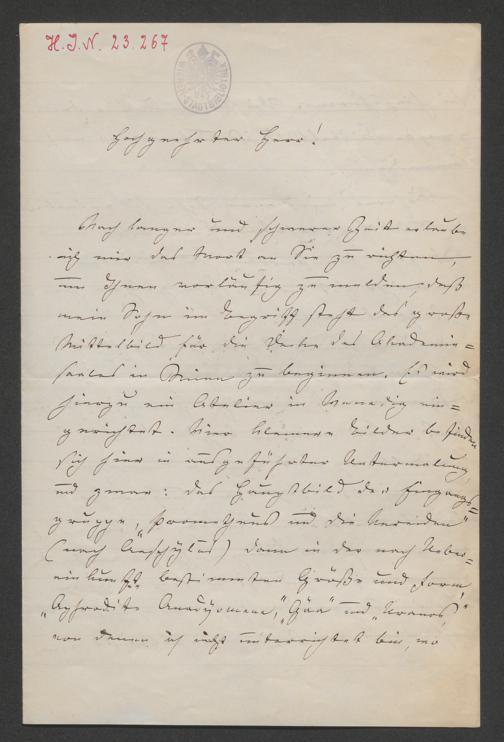 H.I.N. 23.267
Hochgeehrter Herr!
Nach langer und schwerer Zeit erlaube
ich mir das Wort an Sie zu richten,
um Ihnen vorläufig zu melden, daß
mein Sohn im Begriff steht das große
Mittelbild für die Decke des Akademie=
saales in Athen zu beginnen. Es wird
hierzu ein Atelier in Venedig ein=
gerichtet. Vier kleinere Bilder befinden
sich hier in ausgeführter Untermalung
und zwar: das Hauptbild der Eingangs=
gruppe, „Prometheus und die Nereiden"
(nach Aeschylus) dann in der nach Ueber=
einkunft bestimmten Größe und Form,
„Aphrodite Anadyomene", „Gäa" und „Uranos,"
von denen ich nicht unterrichtet bin, wo